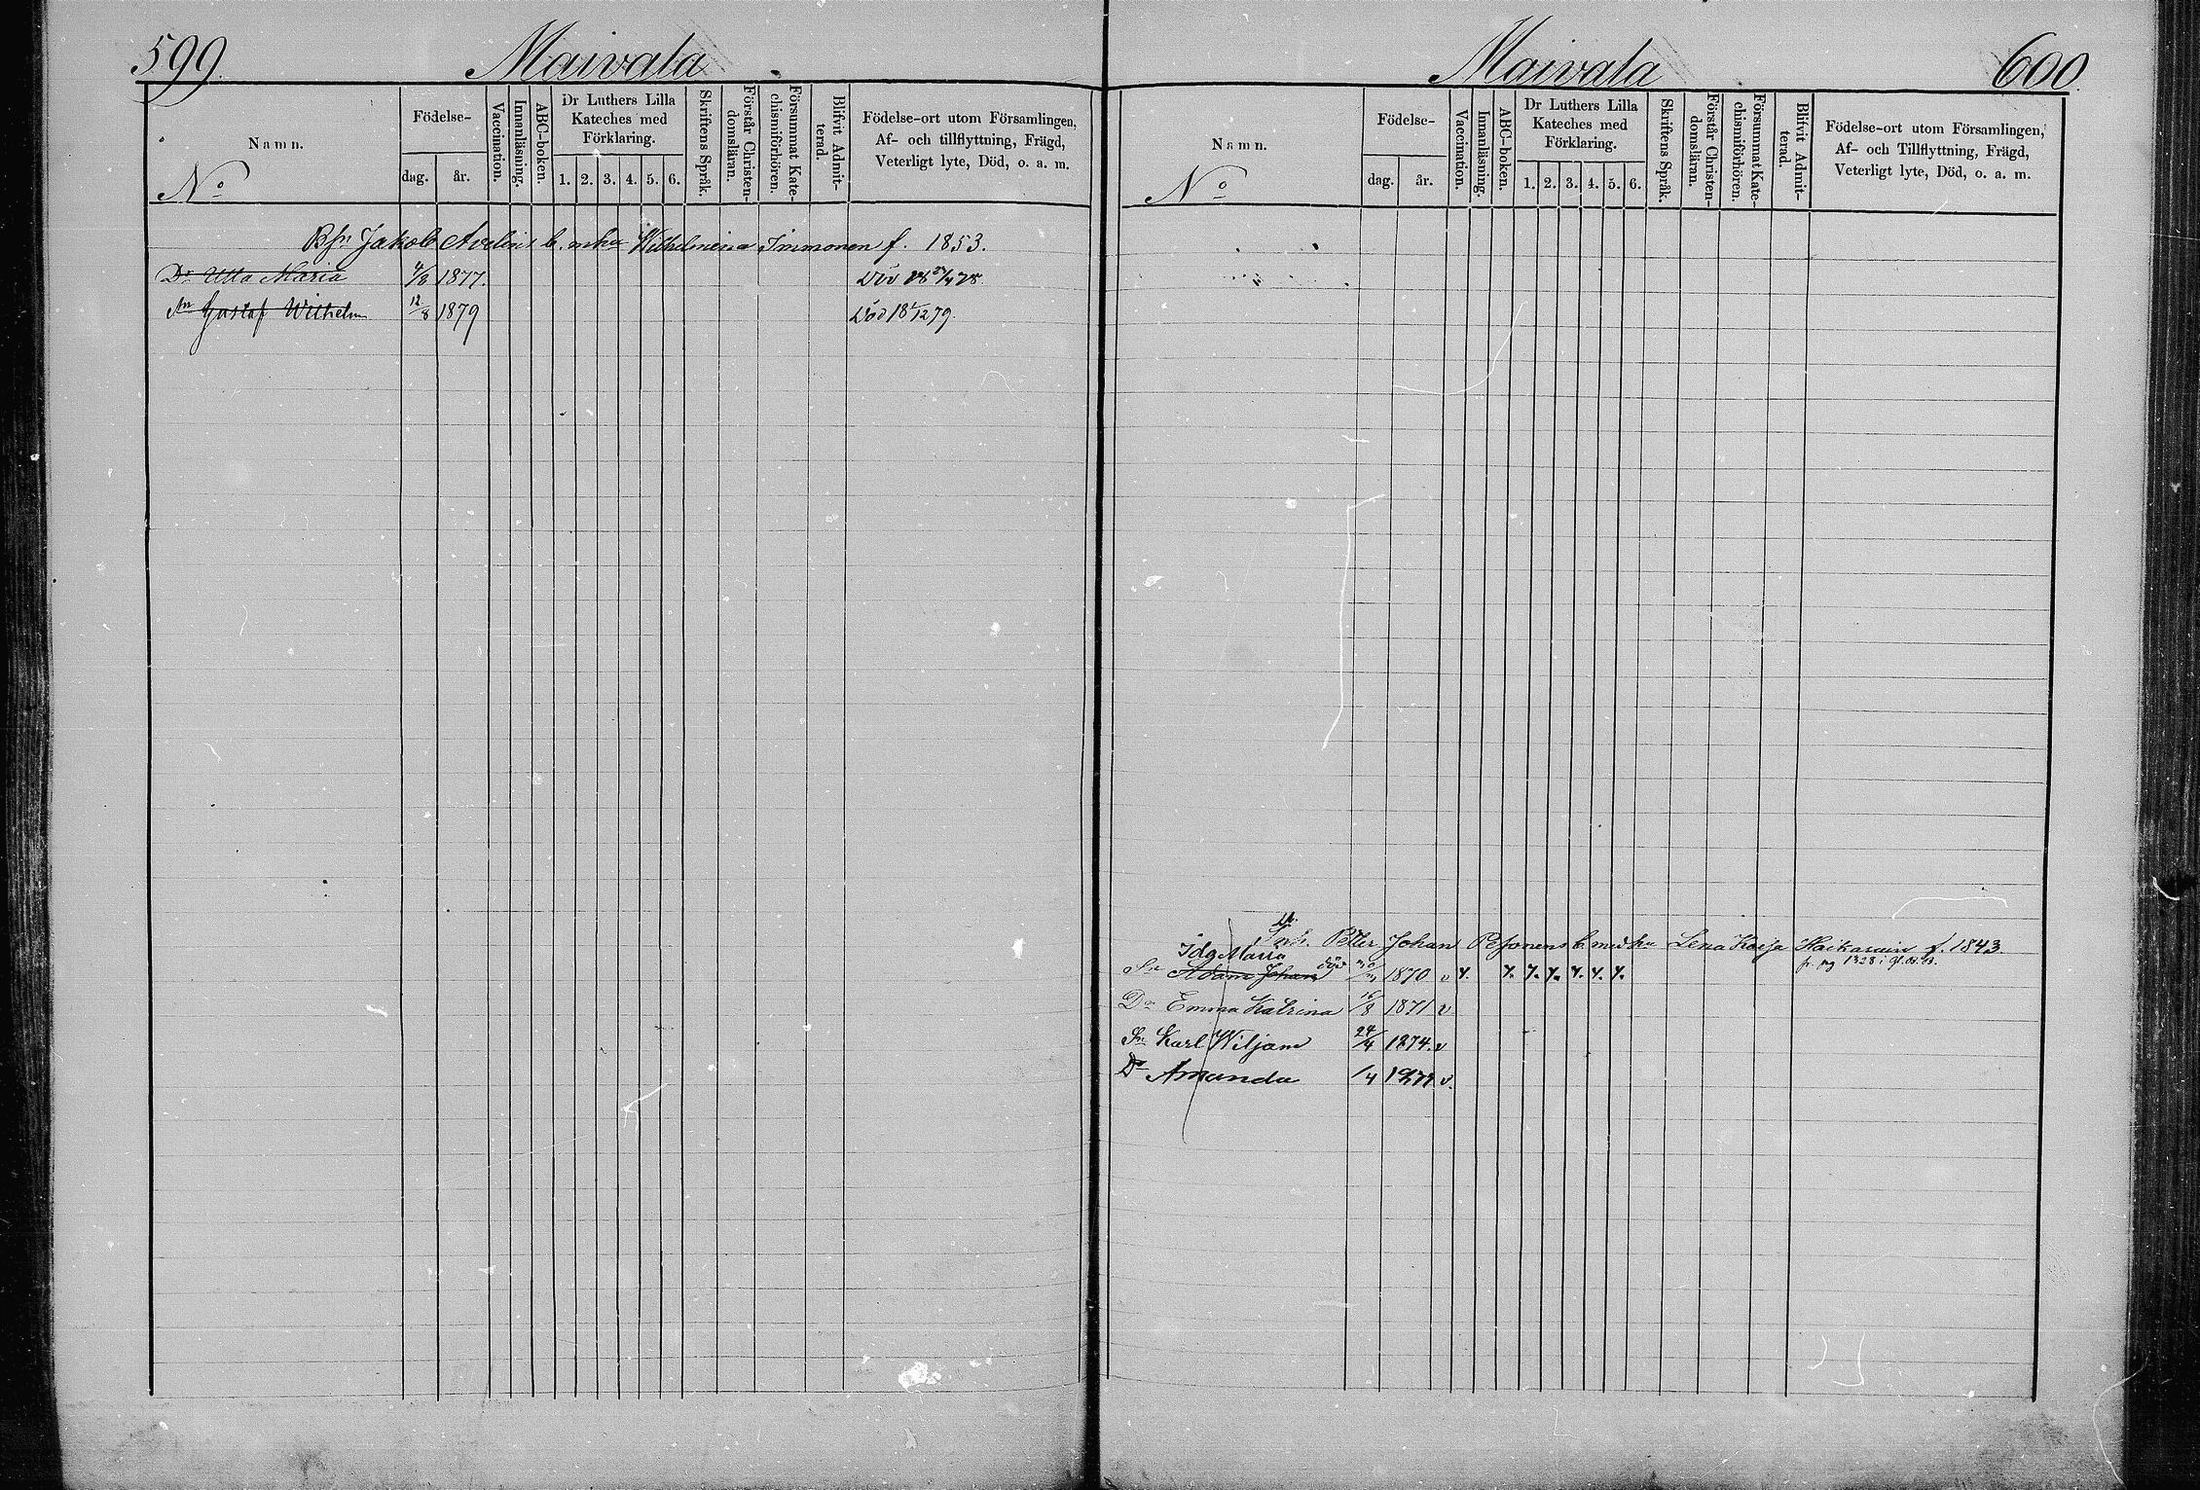 599.
Maivala
Namn.
No
Födelse-
dag.
år.
Vaccination.
Innanläsning.
ABC-boken.
Dr Luthers Lilla
Kateches med
Förklaring.
1. 2. 3. 4. 5. 6.
Skriftens Språk.
Förstår Christen-
domsläran.
Försummat Kate-
chismiförhören.
Blifvit Admit-
terad.
Födelse-ort utom Församlingen,
Af- och tillflyttning, Frägd,
Veterligt lyte, Död, o. a. m.
Jakob b. Wilhelmina Immonen f. 1853.
Dr Ulla Maria 4/8 1877.
Sn Gustaf Wilhelm 12/8 1879 Död 18 1/12 79.
Maivala
600.
Namn.
No
Födelse-
dag.
år.
Vaccination.
Innanläsning.
ABC-boken.
Dr Luthers Lilla
Kateches med
Förklaring.
1. 2. 3. 4. 5. 6.
Skriftens Språk.
Förstår Christen-
domsläran.
Försummat Kate-
chismiförhören.
Blifvit Admit-
terad.
Födelse-ort utom Församlingen,
Af- och Tillflyttning, Frägd,
Veterligt lyte, Död, o. a. m.
Petter Johan Pesonens b. med hu Lena Kaisa f. 1843.
Ida Maria
Sn Adam Johan död 1870 v
Dr Emma Katrina 16/8 1871 v
Sn Karl Wiljam 24/4 1874. v
Dr Amanda /4 1877 v.